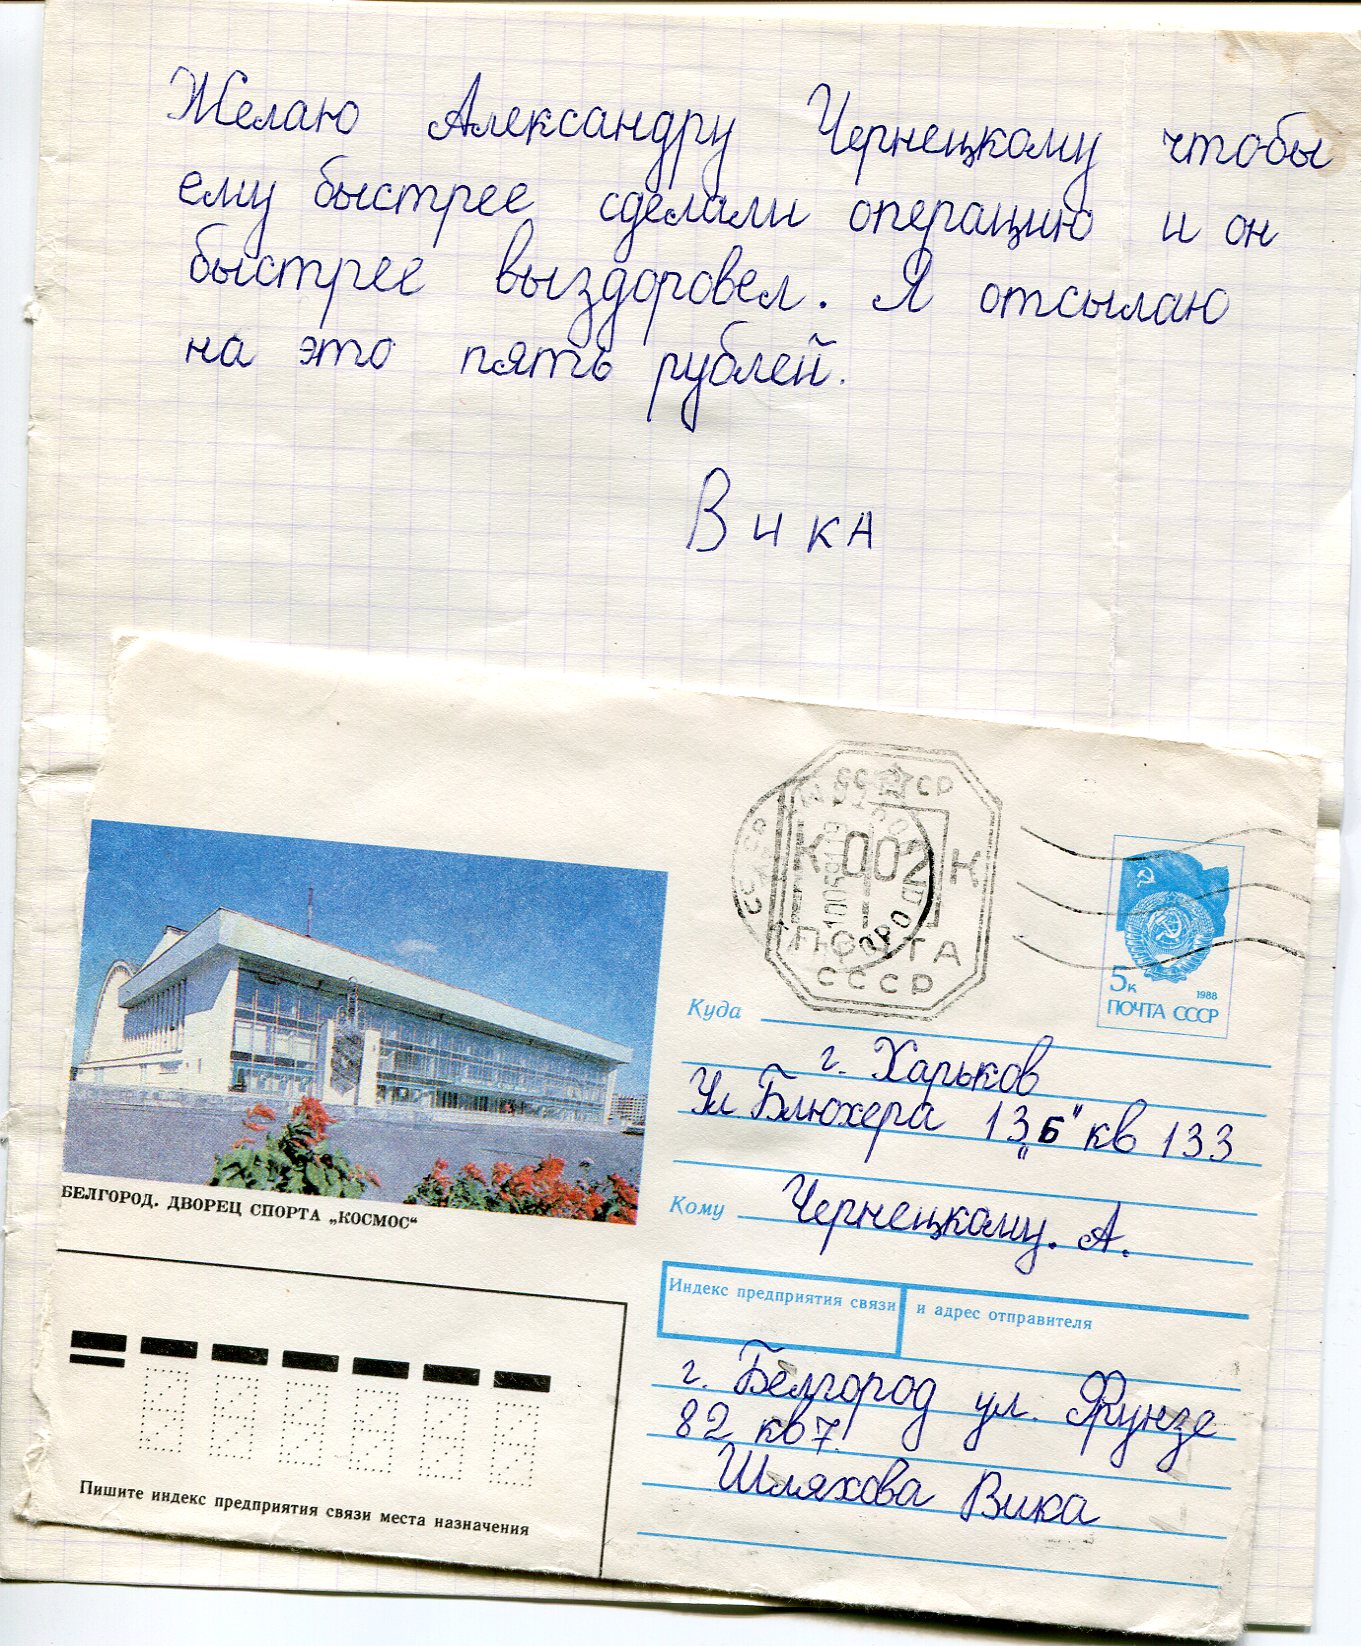 Желаю Александру Чернецкому чтобы
ему быстрее сделали операцию и он
быстрее выздоровел. Я отсылаю
на это пять рублей.
Вика
СССР
К 002 К
ПОЧТА
СССР
5к
1988
ПОЧТА СССР
БЕЛГОРОД. ДВОРЕЦ СПОРТА „КОСМОС“
Куда
г. Харьков
Ул Блюхера 13„Б" кв 133
Кому Чернецкому. А.
Индекс предприятия связи и адрес отправителя
г. Белгород ул. Фрунзе
82 кв 7.
Шляхова Вика
Пишите индекс предприятия связи места назначения